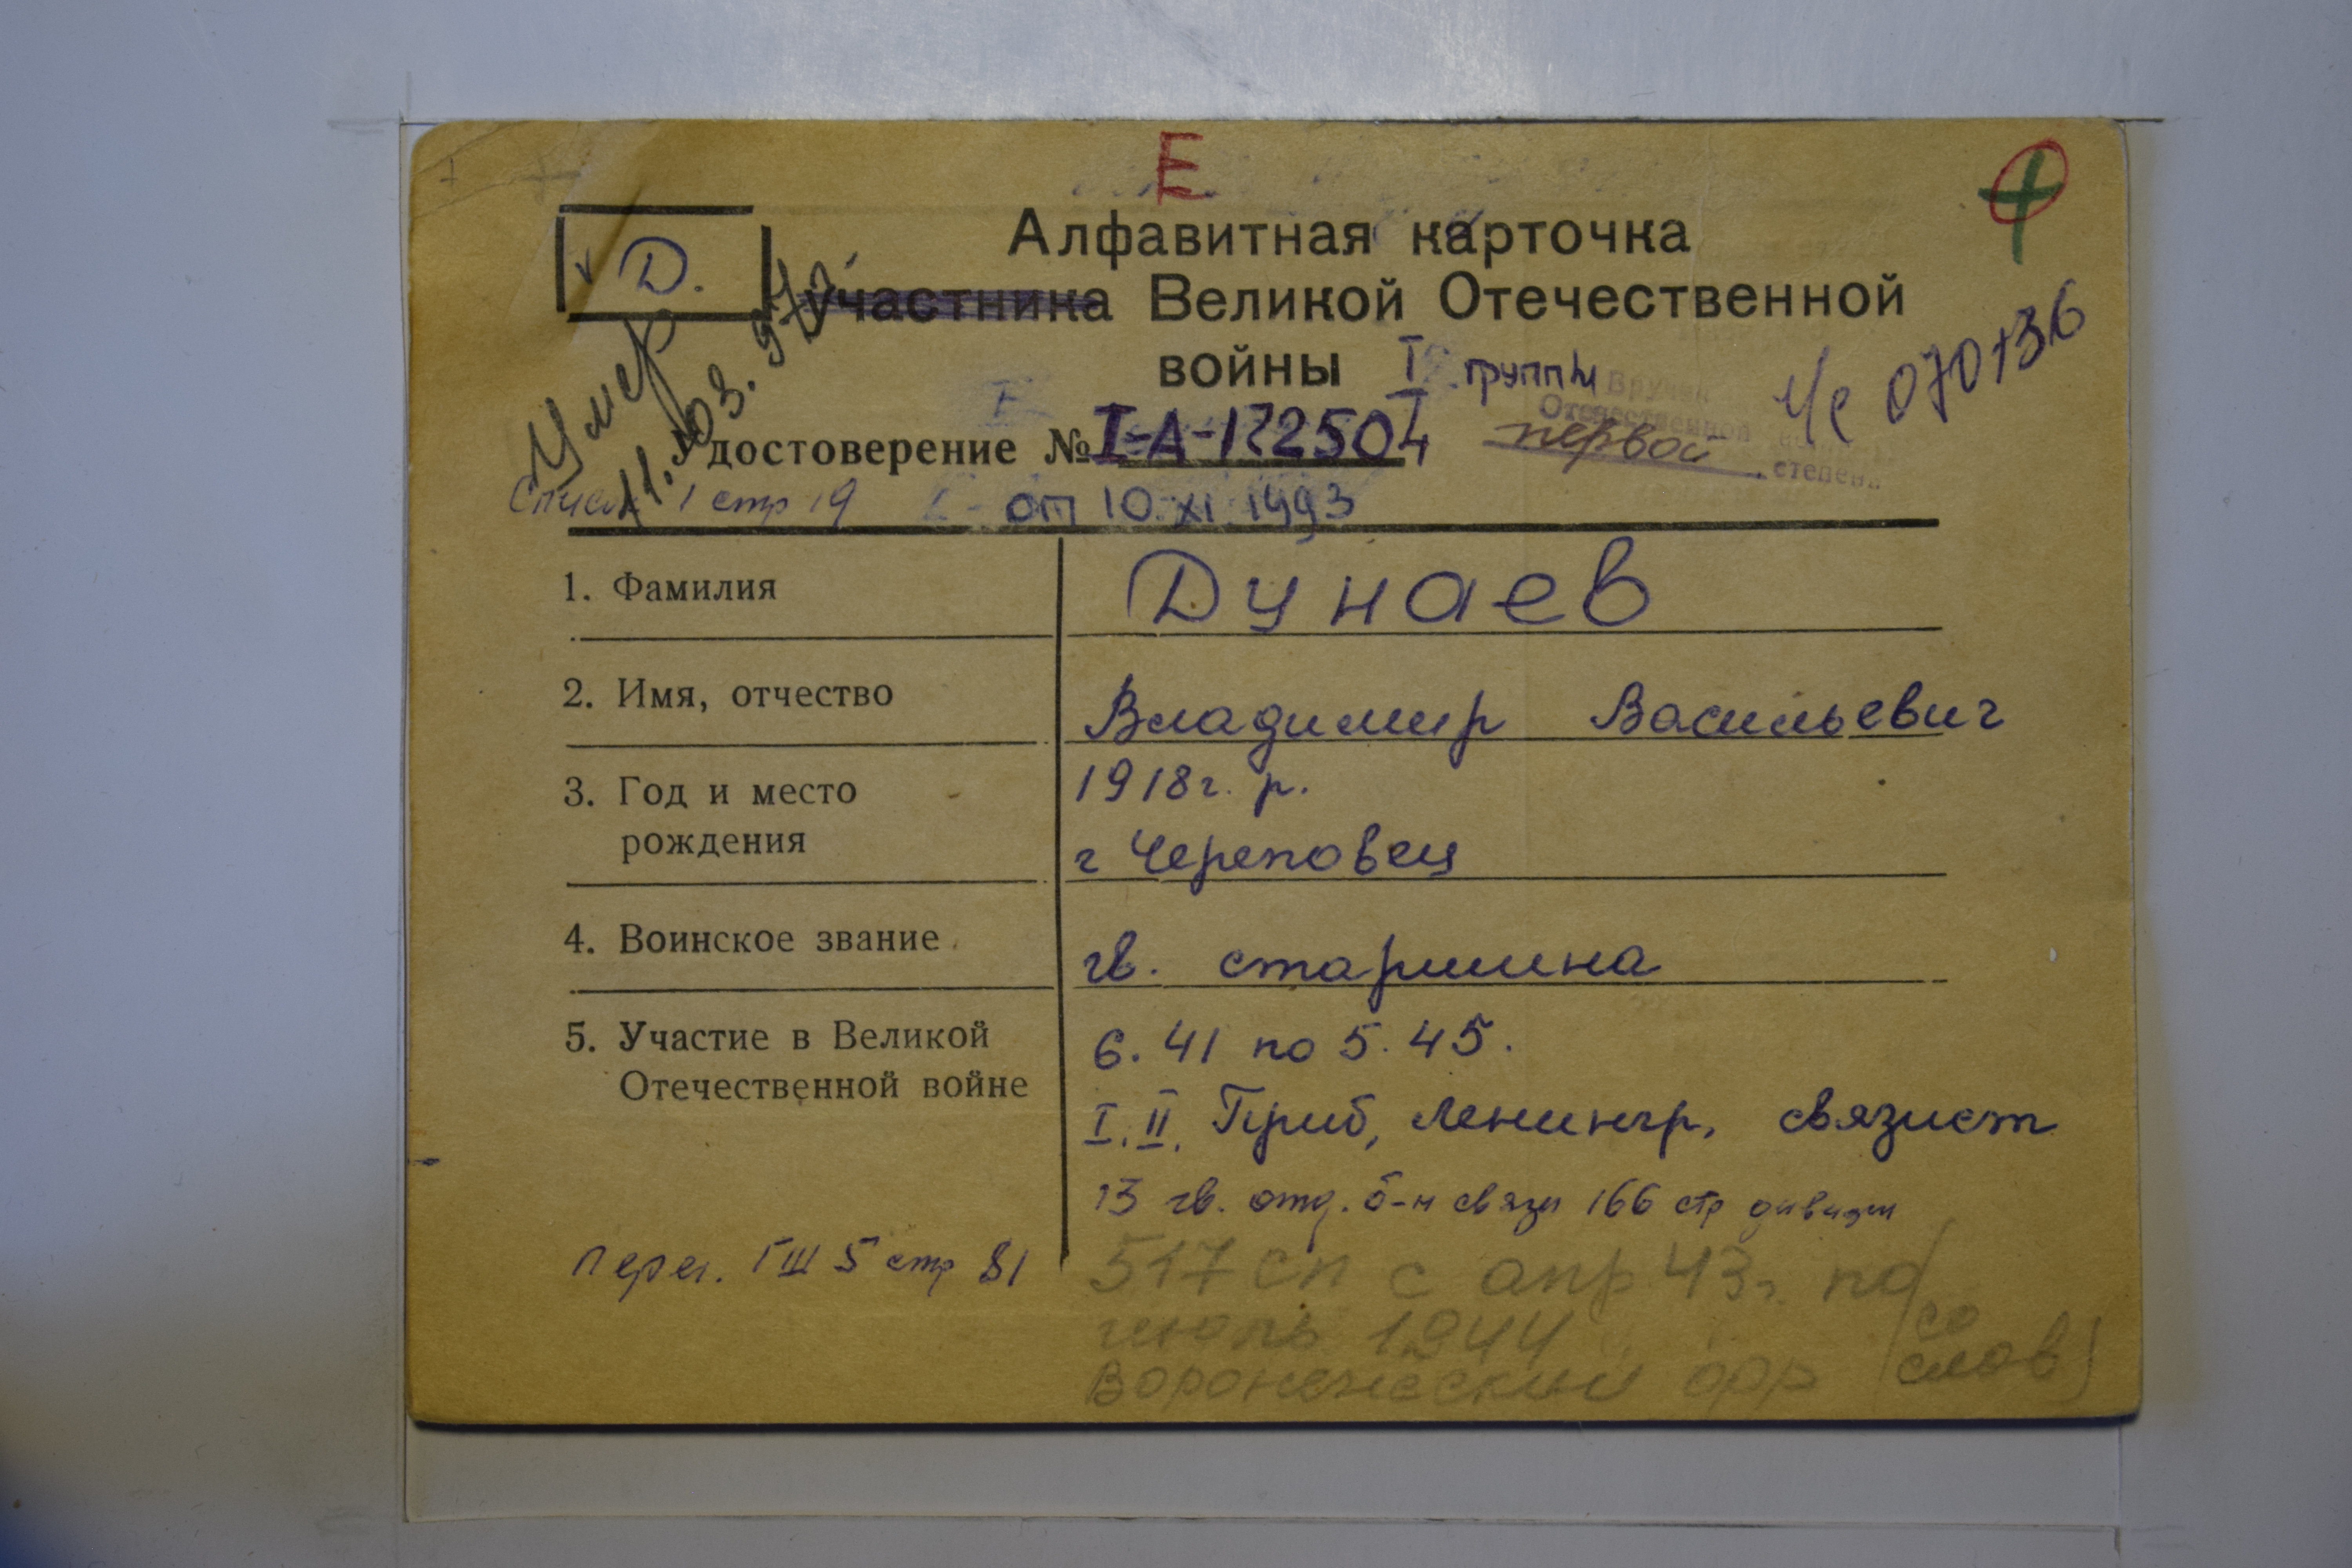 Е
Алфавитная карточка
Д.
участника Великой Отечественной
войны I группы
Умер
11.03.
Вручен
Отечественной войны
первой степени
Ч/с
Удостоверение №
от 10.XI.1993
Список 1 стр 19
1. Фамилия
Дунаев
2. Имя, отчество
Владимир Васильевич
3. Год и место
рождения
1918г. р.
г Череповец
4. Воинское звание
гв. старшина
5. Участие в Великой
Отечественной войне
6. 41 по 5. 45.
I. II. Приб, Ленингр, связист
13 гв. отд. б-н связи 166 стр дивизии
Перег. ГШ 5 стр 81
517 сп с апр 43г. по
июль 1944
Воронежский фр (со
слов)